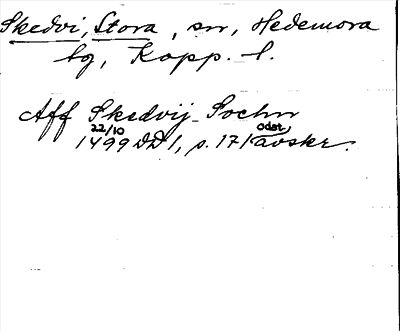 Skedvi, Stora, sn, Hedemora
tg, Kopp. l.
Aff Skedvij Sochn
22/10 odat,
1499 DD 1, s. 171 avskr.